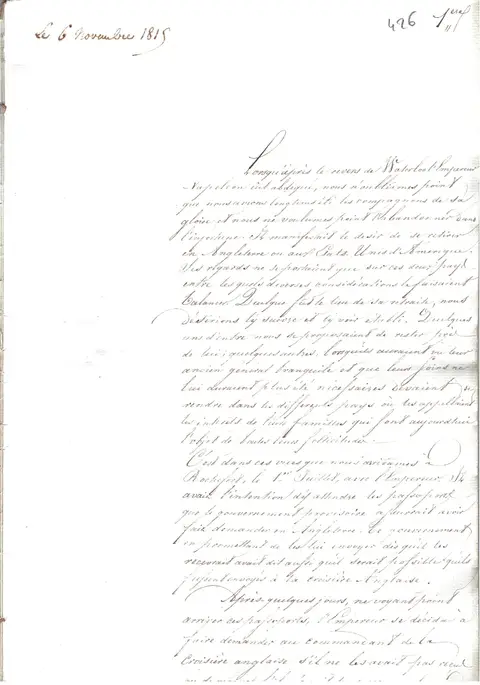 Le 6 Novembre 1815
426 1erf
Lorsqu'après le revers de Waterloo l'Empereur
Napoléon eut abdiqué, nous n'oubliames point
que nous avions longtems été les compagnons de sa
gloire et nous ne voulumes point l'abandonner dans
l'infortune. Il manifestait le desir de se retirer
en Angleterre ou aux Etats Unis d'Amérique.
Ses regards ne se portaient que sur ces deux pays
entre lesquels diverses considérations le faisaient
balancer. Quelque fut le lieu de sa retraite, nous
désirions l'y suivre et l'y voir établi. Quelques
uns d'entre nous se proposaient de rester près
de lui; quelques autres, lorsqu'ils auraient vu leur
ancien général tranquille et que leurs soins ne
lui auraient plus été nécessaires devaient se
rendre dans les différents pays où les appellaient
les intérêts de leurs familles qui sont aujourd'hui
l'objet de toutes leurs sollicitudes.
C'est dans ces vues que nous arrivames à
Rochefort, le 1er Juillet, avec l'Empereur. Il
avait l'intention d'y attendre les passeports
que le gouvernement provisoire assurait avoir
fait demander en Angleterre. Ce gouvernement
en promettant de les lui envoyer dès qu'il les
recevrait avait dit aussi qu'il serait possible qu'ils
fussent envoyés à la croisière Anglaise.
Après quelques jours, ne voyant point
arriver ces passeports, l'Empereur se décida à
faire demander au commandant de la
Croisière anglaise s'il ne les avait pas reçus